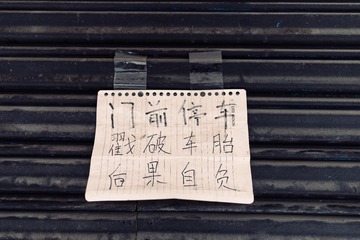 门前停车
戳破车胎
后果自负